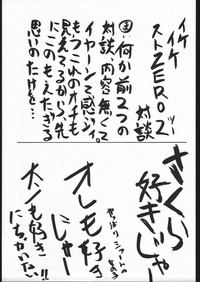 イケイケ
ストZERO2ッー
対談
何か前2つの
対談内容無くて
イヤーンて感ジ。
もうこれのオチも
見えてるから、先
にこのもえたぎる
思いのたけを…
さくら
好きじゃー
オレも好き
にゃー
やっぱり ショートの
女の子
大ノも好き
にちがいない!!